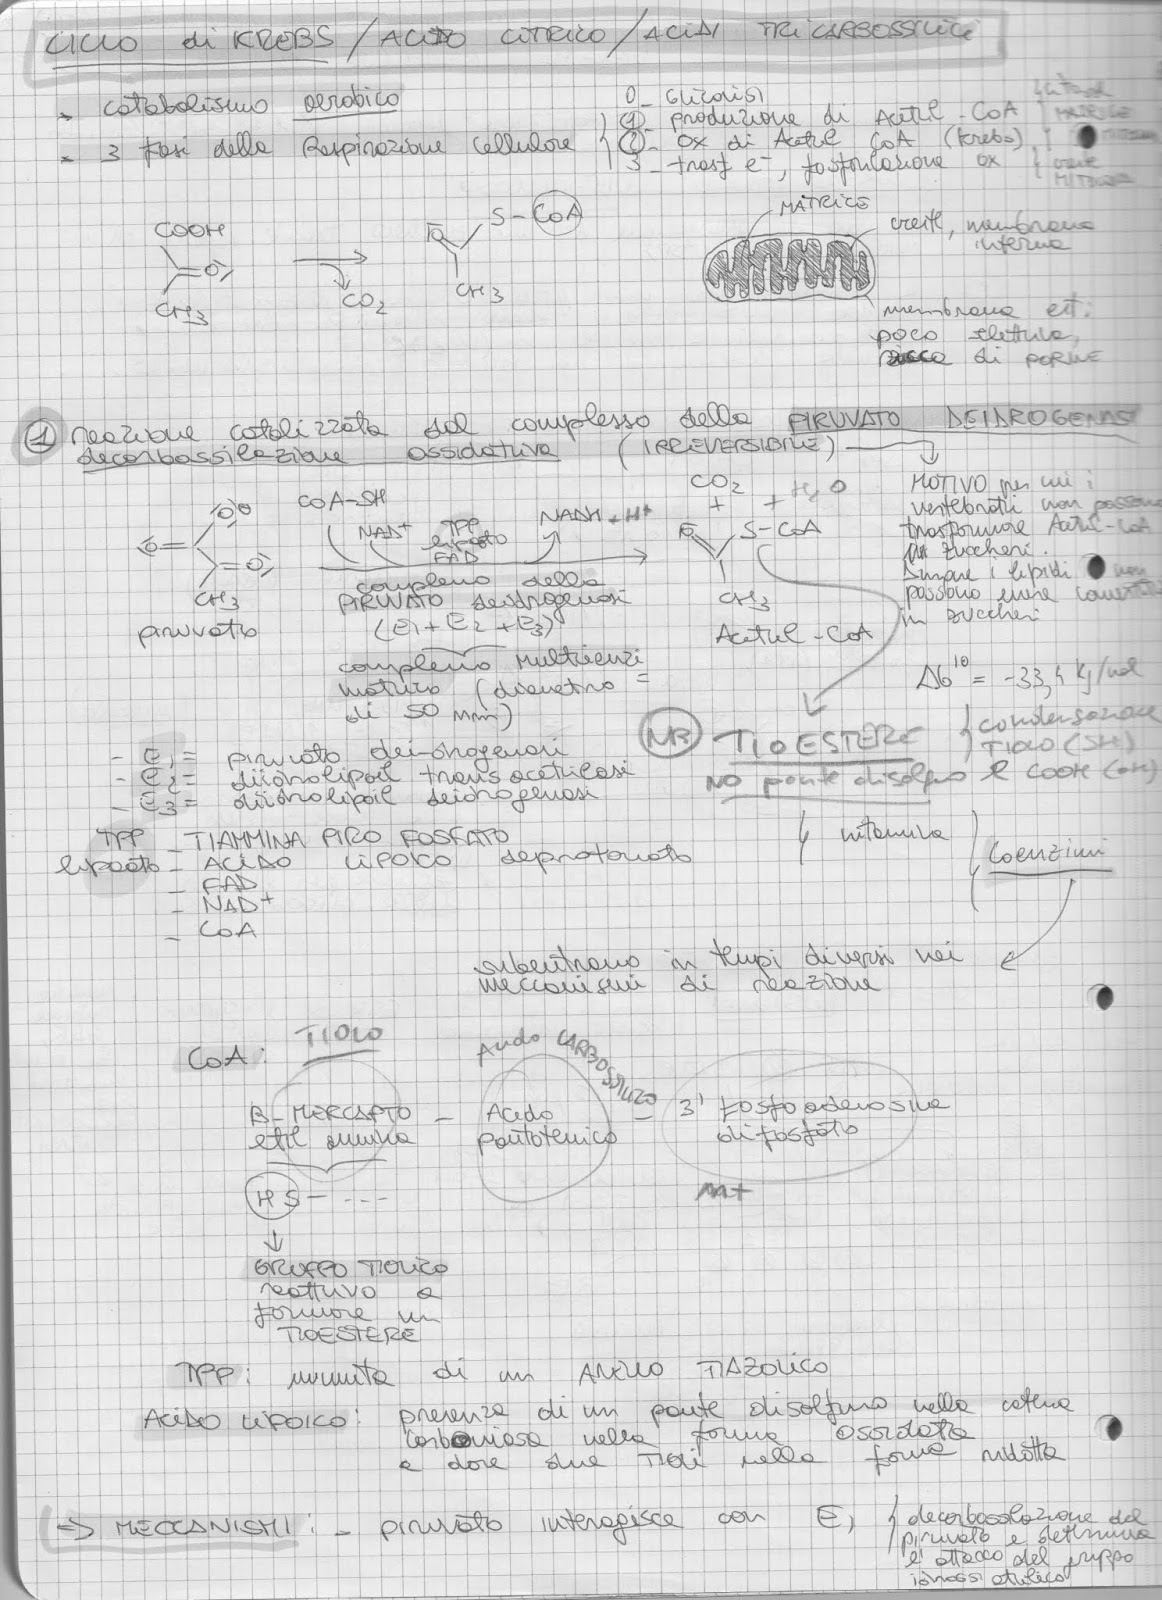 CICLO di KREBS / ACIDO CITRICO / ACIDI TRICARBOSSILICI
- catabolismo aerobico
- 3 fasi della Respirazione Cellulare
0 - GLICOLISI
1 - produzione di Acetil-CoA
2 - ox di Acetil CoA (Krebs)
3 - trasf e-, fosforilazione ox
MATRICE
creste, membrana
interna
membrana est:
poco selettiva,
ricca di PORINE
COOH
O
CH3
CO2
O
S - CoA
CH3
1 reazione catalizzata dal complesso della PIRUVATO DEIDROGENASI
decarbossilazione ossidativa (IRREVERSIBILE)
MOTIVO per cui i
vertebrati non possono
trasformare Acetil-CoA
in zuccheri.
Dunque i lipidi non
possono essere convertiti
in zuccheri
O
O
O
CH3
piruvato
CoA-SH
NAD+
TPP
lipoato
FAD
NADH + H+
complesso della
PIRUVATO deidrogenasi
(E1 + E2 + E3)
complesso multienzi
matico (diametro =
di 50 nm)
CO2 + H2O
+
O
S-CoA
CH3
Acetil-CoA
ΔG'0 = -33,4 kJ/mol
NB TIOESTERE
condensazione
TIOLO (SH)
e COOH (OH)
NO ponte disolfuro
- E1 = piruvato deidrogenasi
- E2 = diidrolipoil transacetilasi
- E3 = diidrolipoil deidrogenasi
TPP - TIAMMINA PIRO FOSFATO
lipoato - ACIDO LIPOICO deprotonato
- FAD
- NAD+
- CoA
vitamina
Coenzimi
subentrano in tempi diversi nei
meccanismi di reazione
CoA:
TIOLO
Acido CARBOSSILICO
β-MERCAPTO - Acido - 3' fosfoadenosina
etil ammina pantotenico difosfato
HS - ---
GRUPPO TIOLICO
reattivo a
formare un
TIOESTERE
TPP: munita di un ANELLO TIAZOLICO
ACIDO LIPOICO: presenza di un ponte disolfuro nella catena
carboniosa nella forma ossidata
e dare due TIOLI nella forma ridotta
→ MECCANISMI: - piruvato interagisce con E1
decarbossilazione del
piruvato e determina
l'attacco del gruppo
idrossietilico